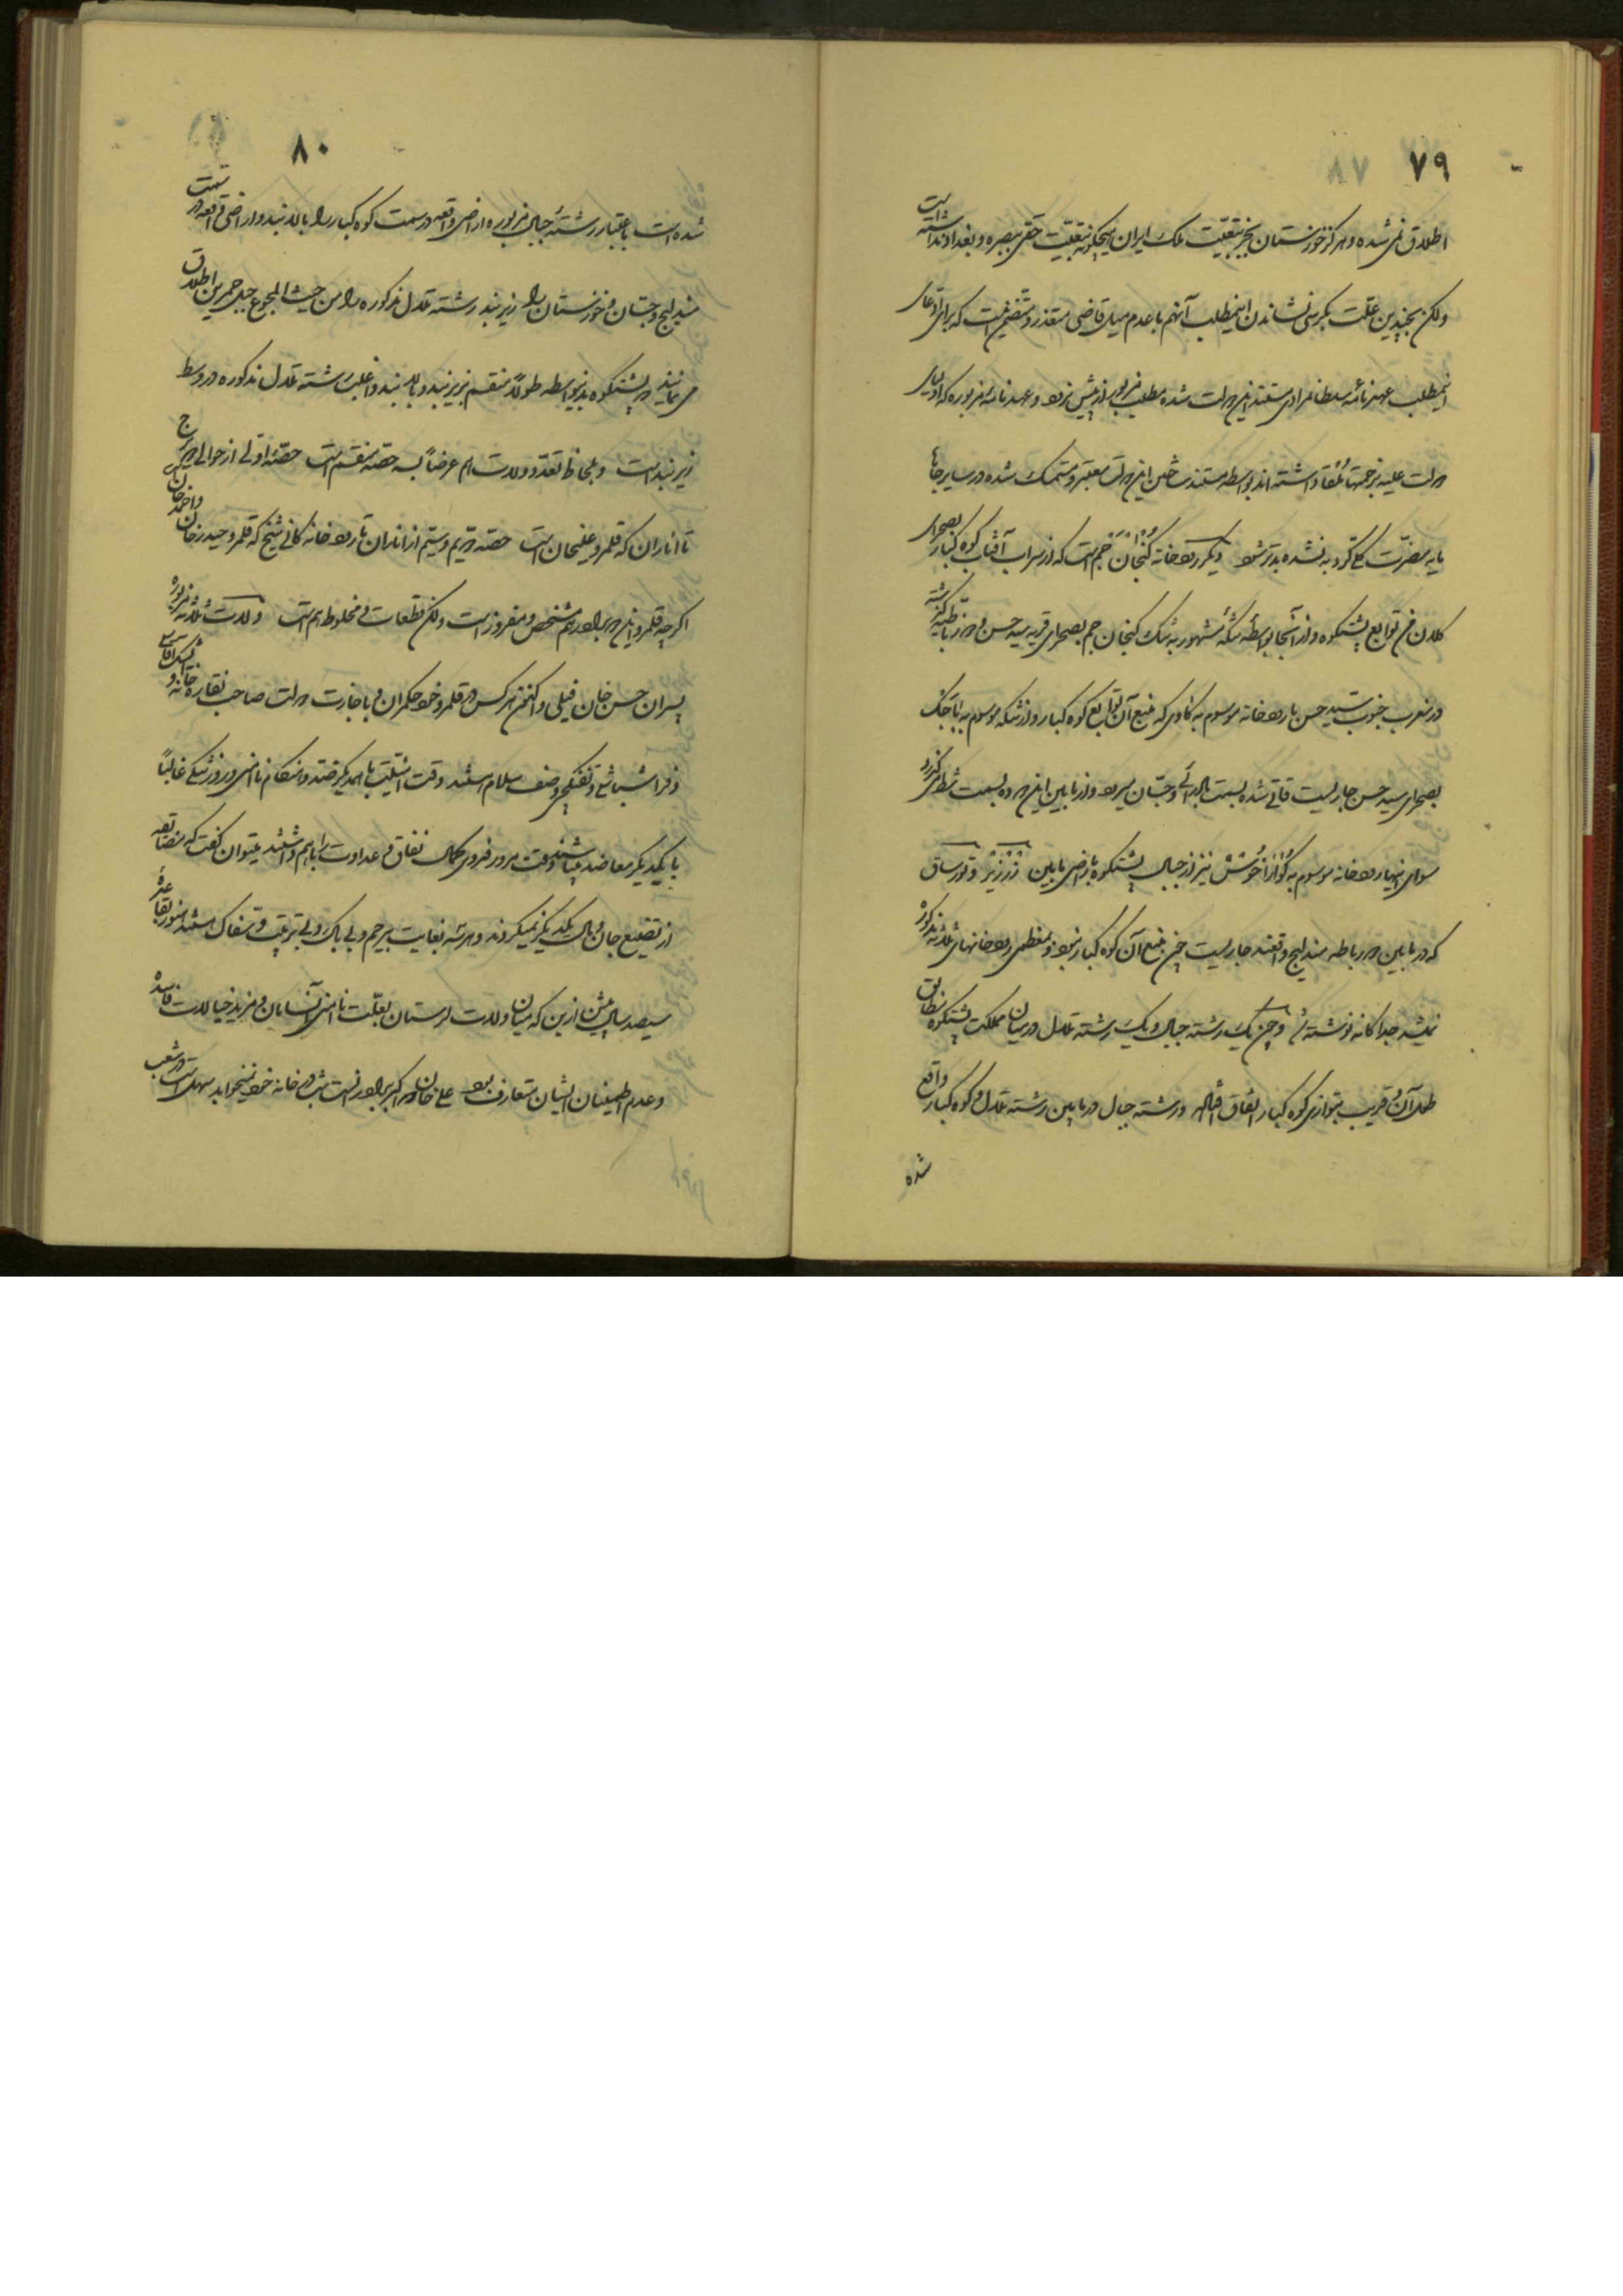 ٧٩
اطلاق نمی شده و هرگز خوزستان بجز تبعیّت ملک ایران هیچگونه تبعیّت حقی ببصره و بغداد نداشته است
ولکن بچندین علّت بکرسی نشاندن اینمطلب آنهم با عدم میل قاضی متعذر و متضمن نیست که برای ادعای
اینمطلب عهدنامهٔ سلطانمرادی مستند این دولت شده مطلب مزبور از پیش نرود و عهدنامهٔ مزبوره که اولیای
دولت علیه بزحمتها ملقا داشته اند بواسطه مستند ساختن این دولت معتبر و متمسک شده در سایر جاها
مایه مضرّت کلی گردد به نشده بدتر شود دیگر رودخانه کنجان جم است که از سراب آفتاب کوه کبار بصحرای
کلان من توابع پشتکوه و از آنجا بواسطه تنگهٔ مشهور به تنگ کنجان جم بصحرای قریه سید حسن و در باطیه گذشته
در مغرب جنوب سید حسن با رودخانه موسوم به کاوی که منبع آن توابع کوه کبار و از تنگه موسوم به
بصحرای سید حسن جاریست قاتی شده بسمت بادرائی و جسّان میرود و از مابین این دو ده بسمت شط می گذرد
سوای اینها رودخانه موسوم به نیز از جبال پشتکوه باراضی مابین و تورساق
که در مابین در باطیه مندلیج واقعند جاریست چون منبع آن کوه کبار نبود و بمعظمی رودخانهای ثلاثه مذکوره
نمیشد جداگانه نوشته و چون یک رشته جبال و یک رشته تلال در میان مملکت پشتکوه مطابق
طول آن و قریب بتوازی کوه کبار اتفاق افتاده و رشته جبال در مابین رشته تلال و کوه کبار واقع
شده
٨٠
شده است باعتبار رشتهٔ جبال مزبوره اراضی واقعه در سمت کوه کبار را بالابند و اراضی واقعه در سمت
مندلیج و جسّان و خوزستان را زیربند رشته تلال مذکوره را من حیث المجموع جبل حمرین اطلاق
می نمایند پشتکوه بدینواسطه طولاً منقسم بزیربند و بالابند و اغلب رشته تلال مذکوره در وسط
زیربند است و بلحاظ تعدّد ولات هم عرضاً بسه حصّه منقسم است حصّهٔ اوّلی از حوالی
تا اناران که قلمرو علیخان است حصّه دویّم و سیّم از اناران تا رودخانه کانی شیخ که قلمرو حیدرخان و احمدخان
اگرچه قلمرو این دو برادر هم مشخص و مفروز است ولکن قطعات مخلوط هم است ولات ثلاثه مزبوره
پسران حسن خان فیلی و اکنون هر کس در قلمرو خود حکمران و باجازت دولت صاحب نقاره خانه و ایشیک آقاسی
و فراشباشی و تفنگچی و صنف سلام هستند وقت باهمدیگر ضد و هنگام ناامنی و روز تنگی غالباً
با یکدیگر معاضد میباشند وقت مرور فرور کمال نفاق و عداوت را باهم داشتند میتوان گفت که مضایقه
از تضییع جان و مال یکدیگر نمیکردند و هر سه بغایت بیرحم و بی باک و بی تربیت و سفاک هستند
سیصد سال پیش ازین که میان ولات لرستان بعلّت ناامنی آنسامان و مزید خیالات فاسده
و عدم اطمینان ایشان متعارف بود علی خان که برادر است شب در خانه خود نمیخوابد سهل است در شعب